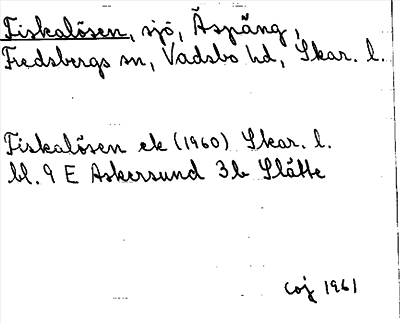 Fiskalösen, sjö, Äspäng,
Fredsbergs sn, Vadsbo hd, Skar. l.
Fiskalösen ek (1960) Skar. l.
bl. 9 E Askersund 3b Slätte
coj 1961